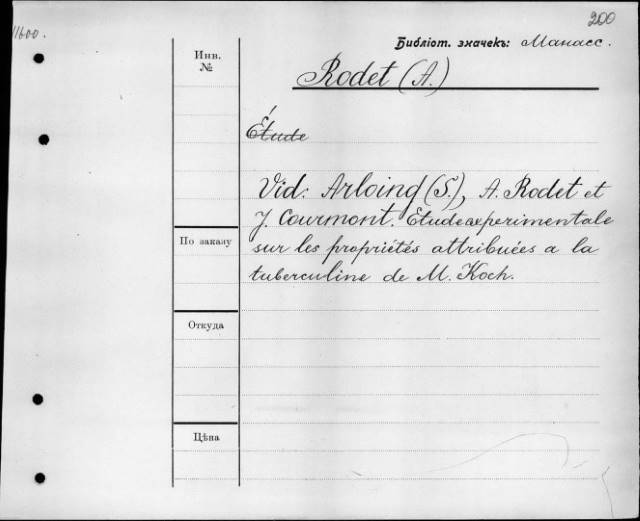 200
11600.
Библіот. значекъ: Манасс.
Инв.
№
Rodet (A.)
Étude
Vid: Arloing (S.), A. Rodet et
J. Courmont. Etude experimentale
sur les propriétés attribuées a la
tuberculine de M. Koch.
По заказу
Откуда
Цѣна